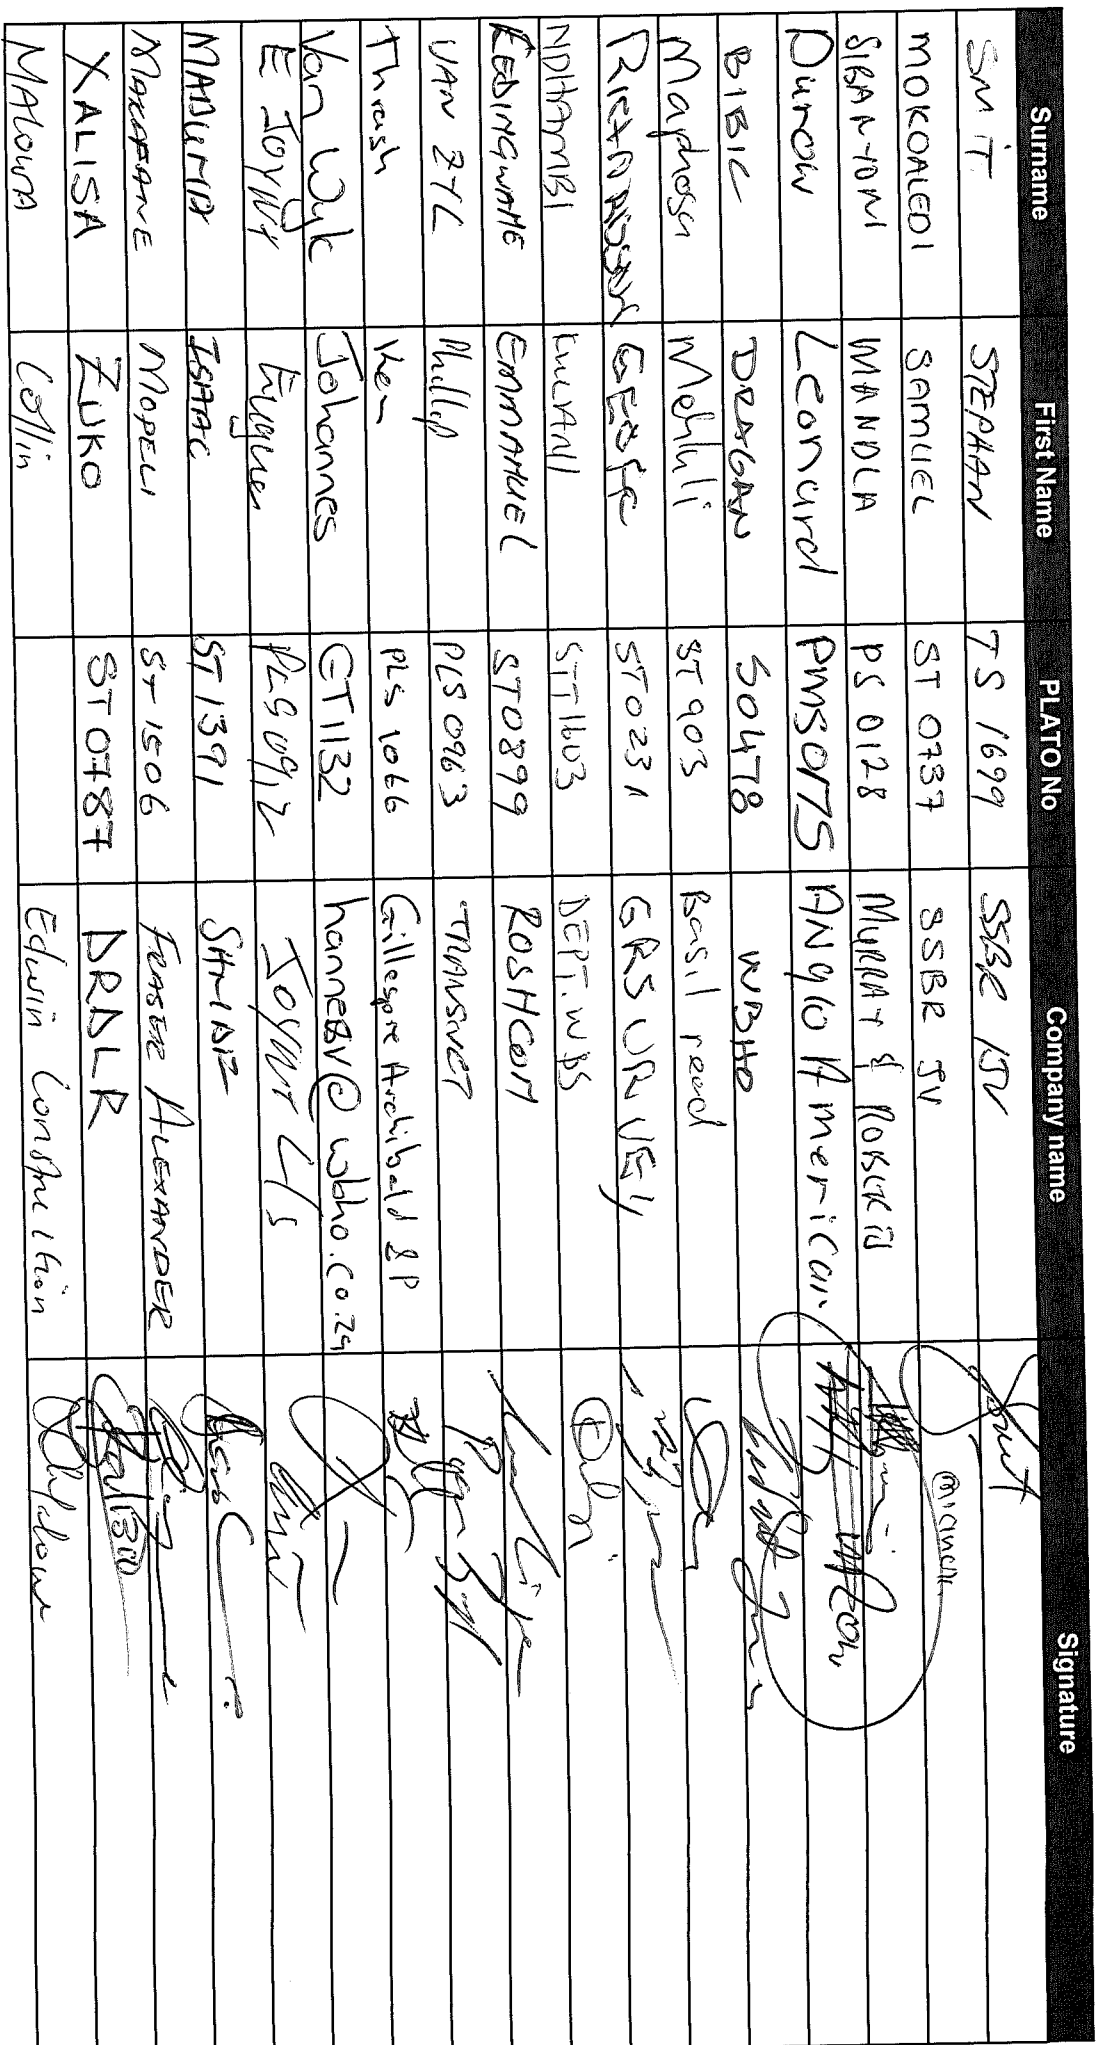 Surname First Name PLATO No Company name Signature
SMIT STEPHAN TS 1699 SSBR JV
MOKOALEDI SAMUEL ST 0737 SSBR JV
SIBANYONI MANDLA PS 0128 MURRAY & ROBERTS
Durow Leonard PMS0175 ANglo American
BIBIC DRAGAN S0478 WBHO
Maphosa Mehluli ST 903 Basil read
RICHARDSON ST 0231 GRSURVEY
NDHAMBI STT1603 DEPT. WDS
KEDINGWAME EMMANUEL ST0899 ROSHCON
VAN ZYL Phillip PLS 0963 TRANSNET
Thrash Ken PLS 1066 Gillespie Archibald & P
Van Wyk Johannes GT1132 hannesv@wbho.co.za
E JOYNT Eugene PLS 0912 JOYNT L/S
MADUMA ISAAC ST 1391
MAKAFANE MOPELI ST 1506 FRASER ALEXANDER
XALISA ZUKO ST 0787 DRDLR
MALOWA Collin Edwin Construction